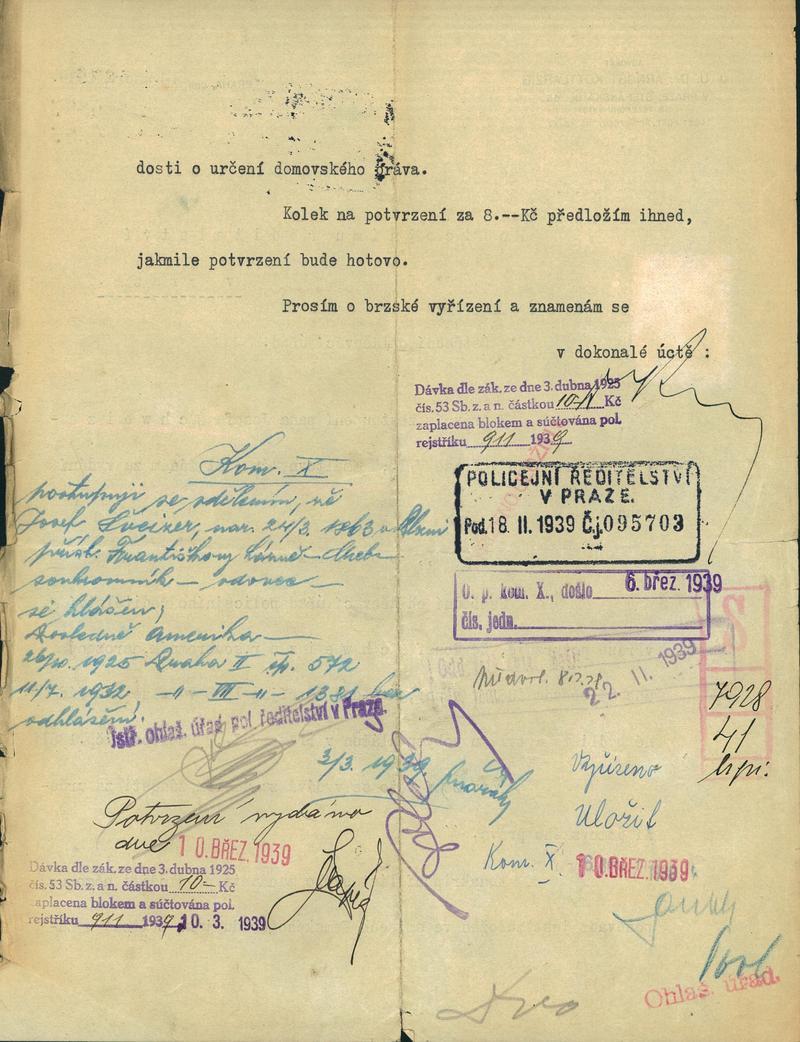 dosti o určení domovského práva.
Kolek na potvrzení za 8.--Kč předložím ihned,
jakmile potvrzení bude hotovo.
Prosím o brzské vyřízení a znamenám se
v dokonalé úctě :
Dávka dle zák. ze dne 3. dubna 1925
čís. 53 Sb. z. a n. částkou 10- Kč
zaplacena blokem a súčtována pol.
rejstříku 911 1939
POLICEJNÍ ŘEDITELSTVÍ
V PRAZE.
Pod. 18. II. 1939 Č.j. 095703
O. p. kom. X., došlo 6. břez. 1939
čís. jedn.
22. II. 1939
7928
41
Kom. X
postupuji se sdělením, že
Josef nar. 24/3. 1863 v Plzni
přísl. Františkovy Lázně - Cheb
soukromník - vdovec
se hlášen;
Posledně Amerika
26/10. 1925 Praha II čp. 572
11/7. 1932 -"- III -"- 1381 bez
odhlášení.
Ústř. ohlaš. úřad pol. ředitelství v Praze.
3/3. 1939
Vyřízeno
Uložit
Kom. X. 10. BŘEZ. 1939
Potvrzení vydáno
dne 10. BŘEZ. 1939
Dávka dle zák. ze dne 3. dubna 1925
čís. 53 Sb. z. a n. částkou 10- Kč
zaplacena blokem a súčtována pol.
rejstříku 911 1939 10. 3. 1939
Ohlaš. úřad.